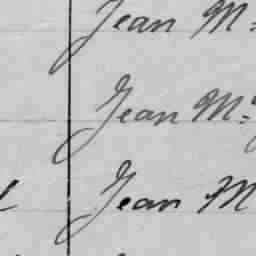 Jean M
Jean M
Jean M